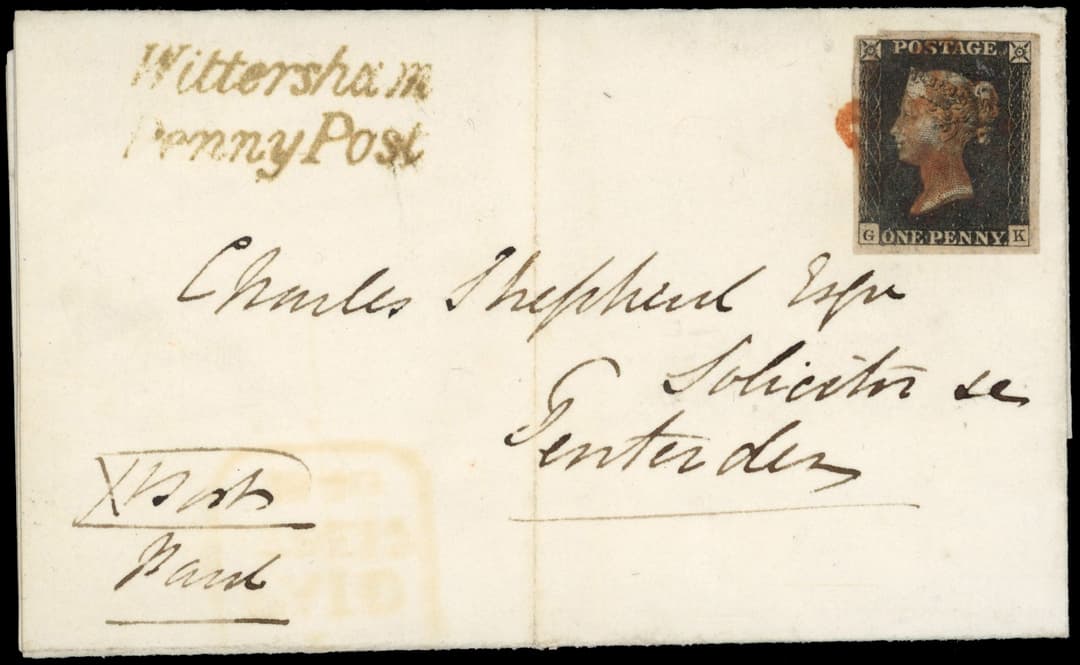 Wittersham
Penny Post
POSTAGE
G ONE PENNY K
Charles Shepherd Esqr
Solicitor &c
Tenterden
Post
Paid